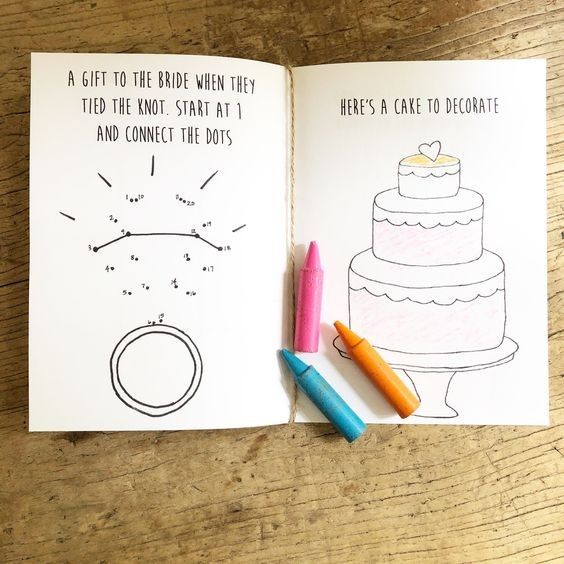 A GIFT TO THE BRIDE WHEN THEY
TIED THE KNOT. START AT 1
AND CONNECT THE DOTS
1 10 20
2 19
3 9 18
4 8 17
5 7 14 16
6 15
HERE'S A CAKE TO DECORATE